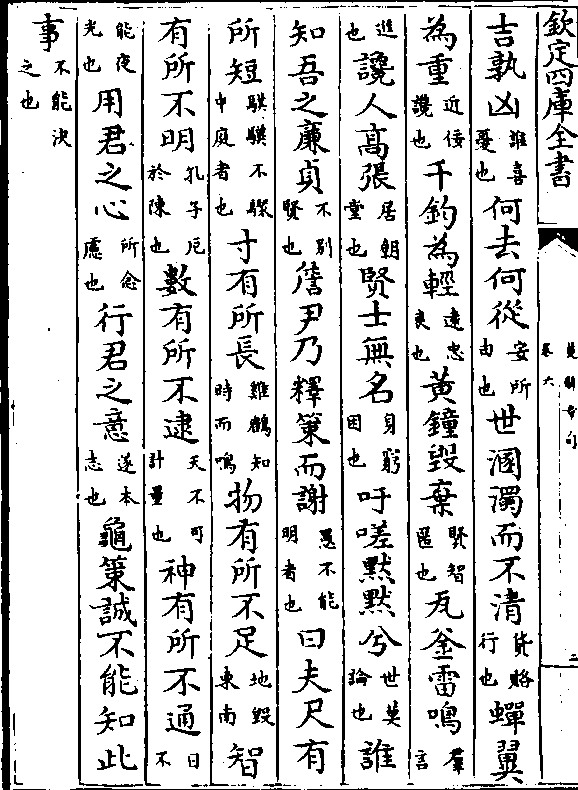 欽定四庫全書
楚辭章句
卷六
二
吉孰凶誰喜憂也何去何從安所由也世溷濁而不清貨賂行也蟬翼
為重近佞讒也千鈞為輕遠忠良也黄鐘毀棄賢智匿也瓦釜雷鳴羣言
進也讒人高張居朝堂也賢士無名身窮困也吁嗟默默兮世莫論也誰
知吾之廉貞不别賢也詹尹乃釋策而謝愚不能明者也曰夫尺有
所短騏驥不驟中庭者也寸有所長雞鶴知時而鳴物有所不足地毀東南智
有所不明孔子厄於陳也數有所不逮天不可計量也神有所不通日不
能夜光也用君之心所念慮也行君之意遂本志也龜策誠不能知此
事不能決之也